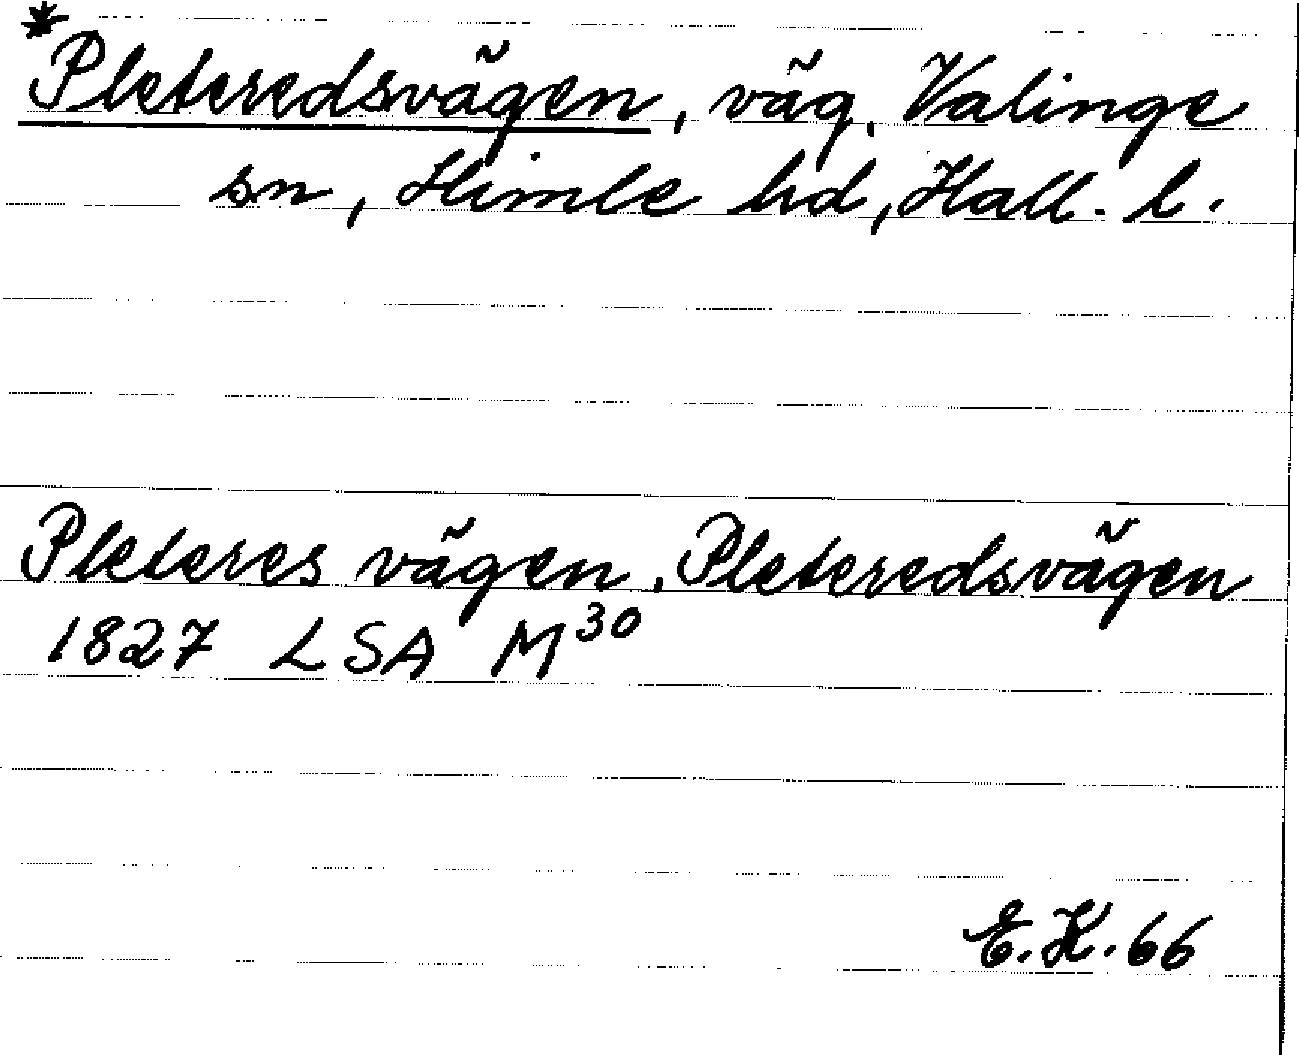 *Pleteredsvägen, väg, Valinge
sn, Himle hd, Hall. l.
Pleteres vägen, Pleteredsvägen
1827 LSA M³⁰
E.K. 66